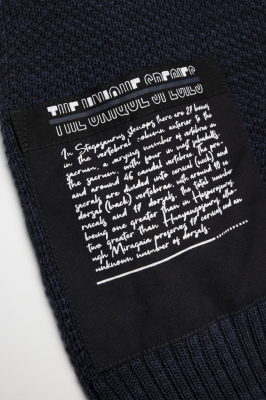 THE UNIQUE SPECIES
In Stegosaurus stenops there are 27 bones
in the vertebral column anterior to the
sacrum, a varying number of vertebrae in
the sacrum, with four in most subadults,
and around 46 caudal vertebrae. The pre-
sacrals are divided into cervical (neck) and
dorsal (back) vertebrae, with around 10 ce-
rvicals and 17 dorsals, the total number
being one greater than Hesperosaurus,
two greater than Huayangosaurus, alt-
ough Miragaia preserves 17 cervicals and an
unknown number of dorsals.